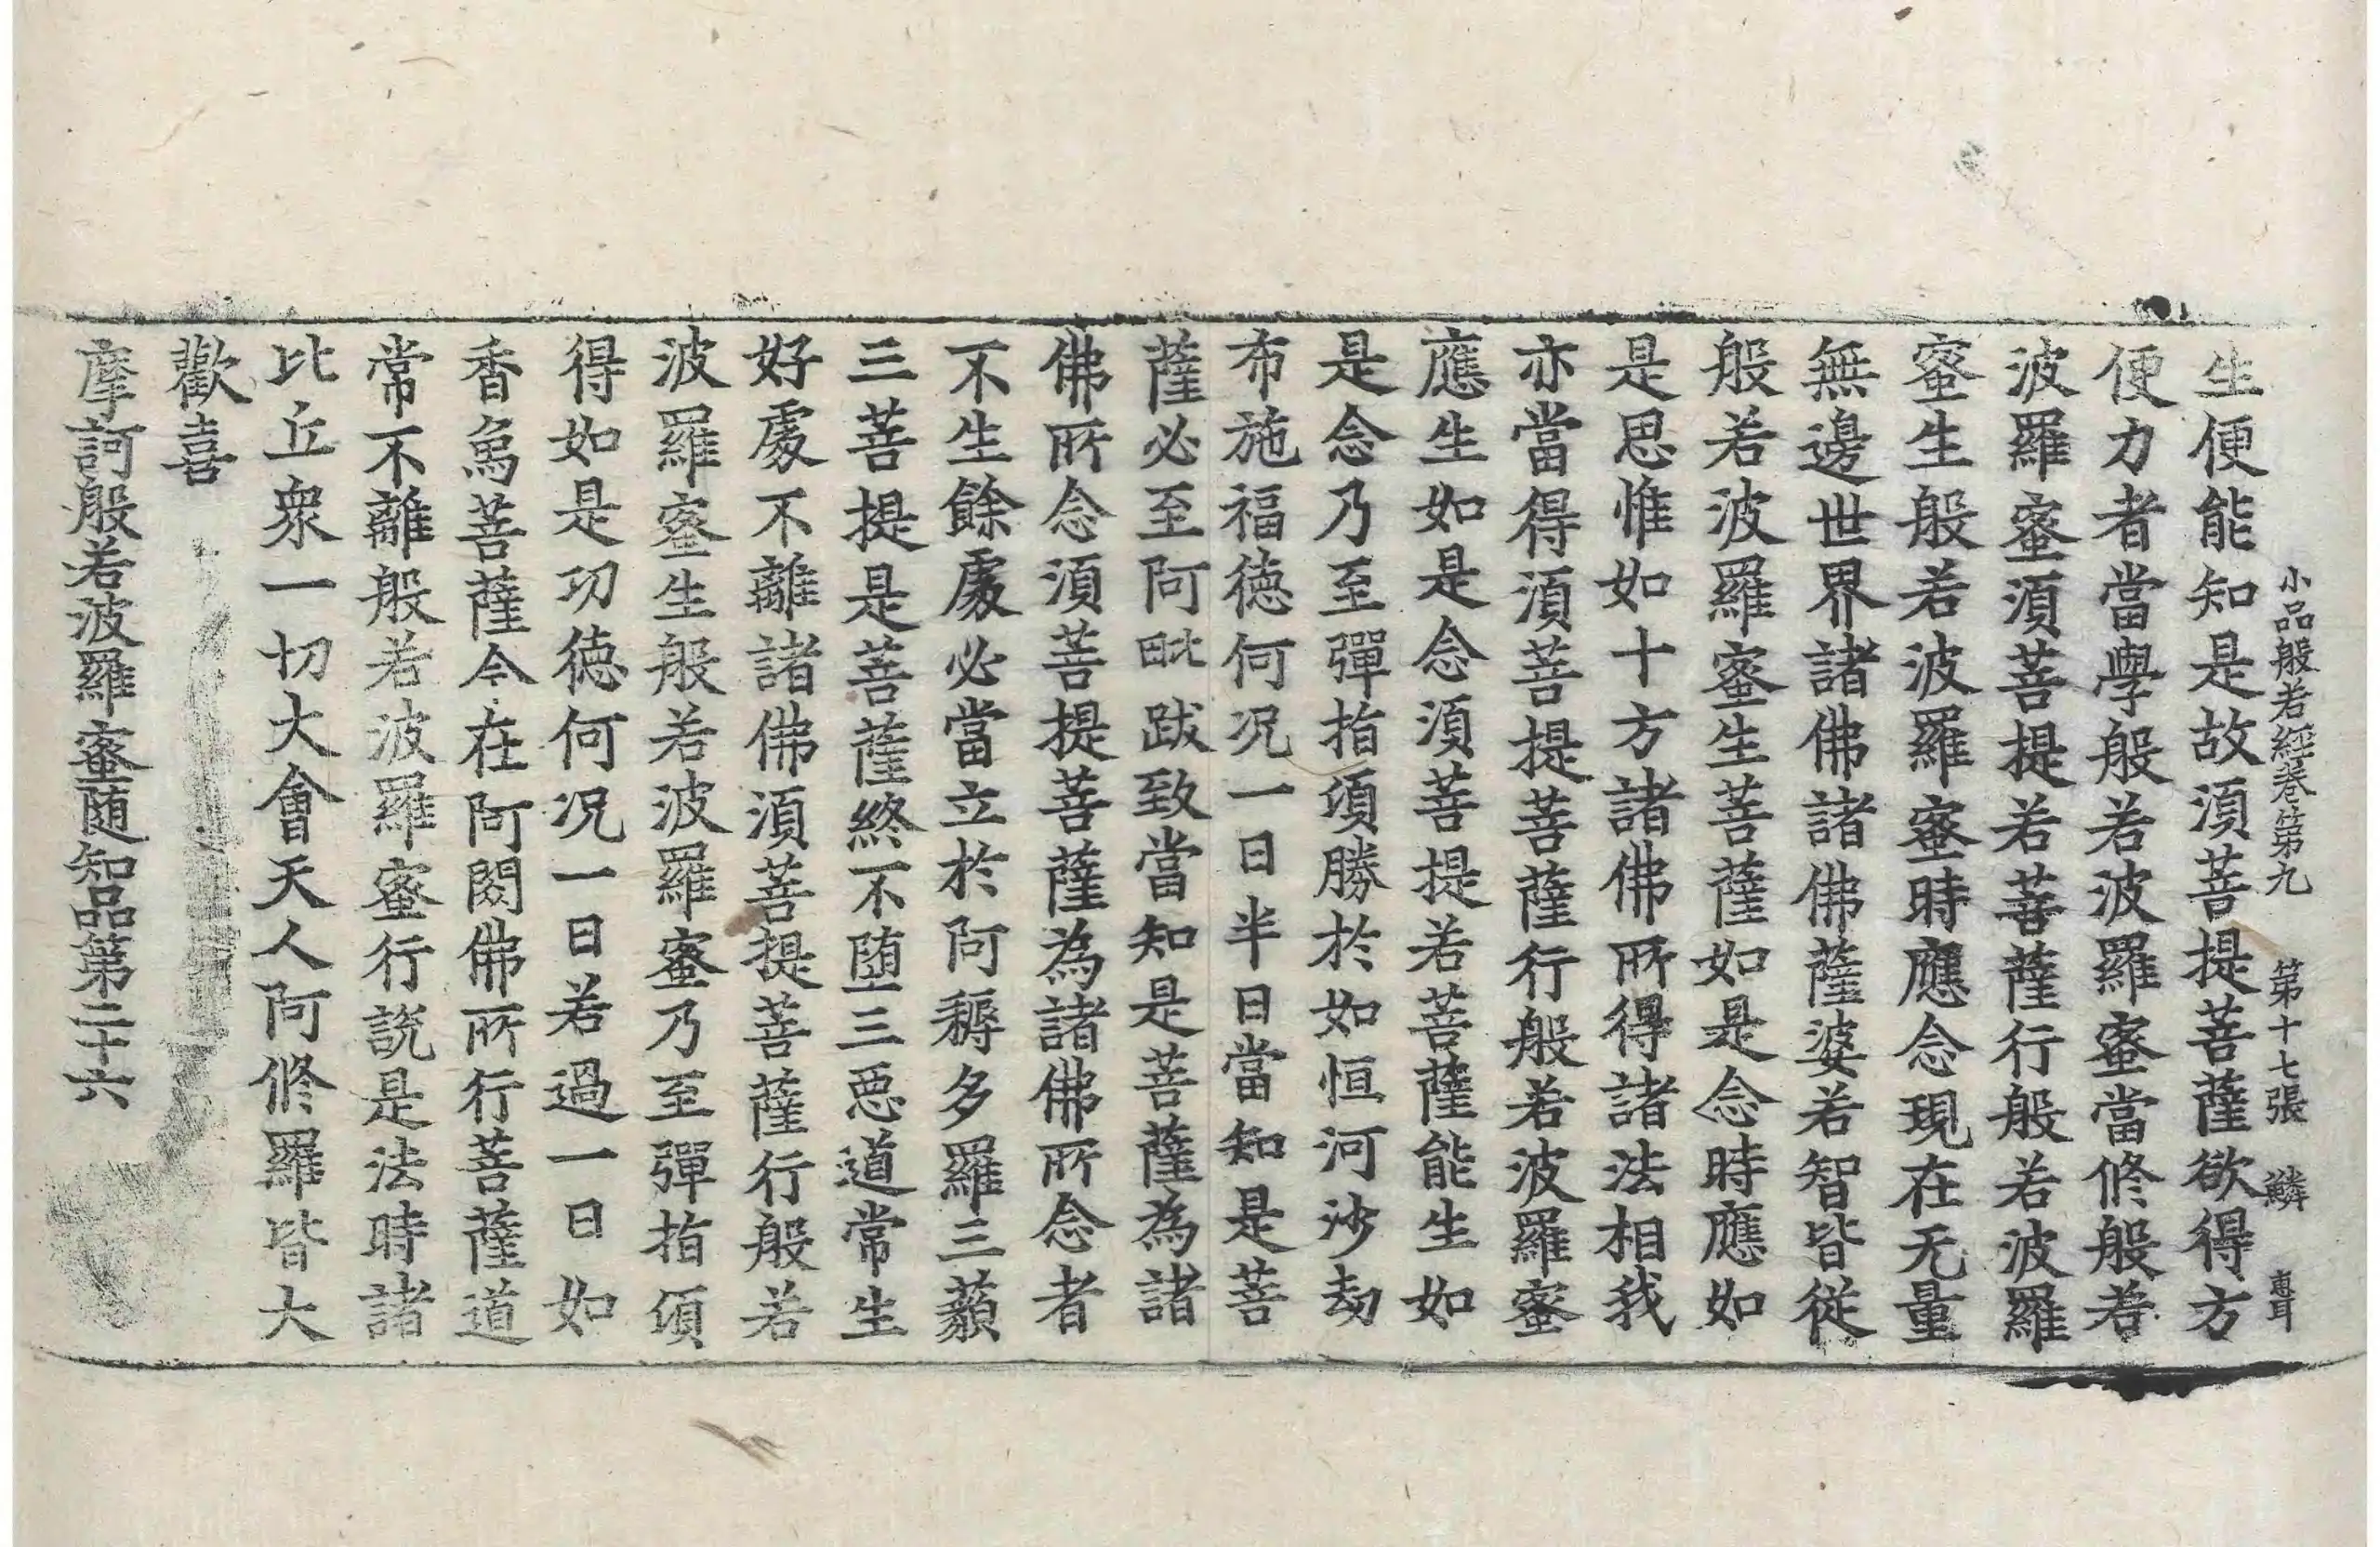 小品般若經卷第九 第十七張 鱗 惠耳
生便能知是故須菩提菩薩欲得方
便力者當學般若波羅蜜當修般若
波羅蜜須菩提若菩薩行般若波羅
蜜生般若波羅蜜時應念現在无量
無邊世界諸佛諸佛薩婆若智皆從
般若波羅蜜生菩薩如是念時應如
是思惟如十方諸佛所得諸法相我
亦當得須菩提菩薩行般若波羅蜜
應生如是念須菩提若菩薩能生如
是念乃至彈指頃勝於如恒河沙劫
布施福德何况一日半日當知是菩
薩必至阿毗跋致當知是菩薩為諸
佛所念須菩提菩薩為諸佛所念者
不生餘處必當立於阿耨多羅三藐
三菩提是菩薩終不墮三惡道常生
好處不離諸佛須菩提菩薩行般若
波羅蜜生般若波羅蜜乃至彈指頃
得如是功德何况一日若過一日如
香象菩薩今在阿閦佛所行菩薩道
常不離般若波羅蜜行說是法時諸
比丘衆一切大會天人阿修羅皆大
歡喜
摩訶般若波羅蜜隨知品第二十六